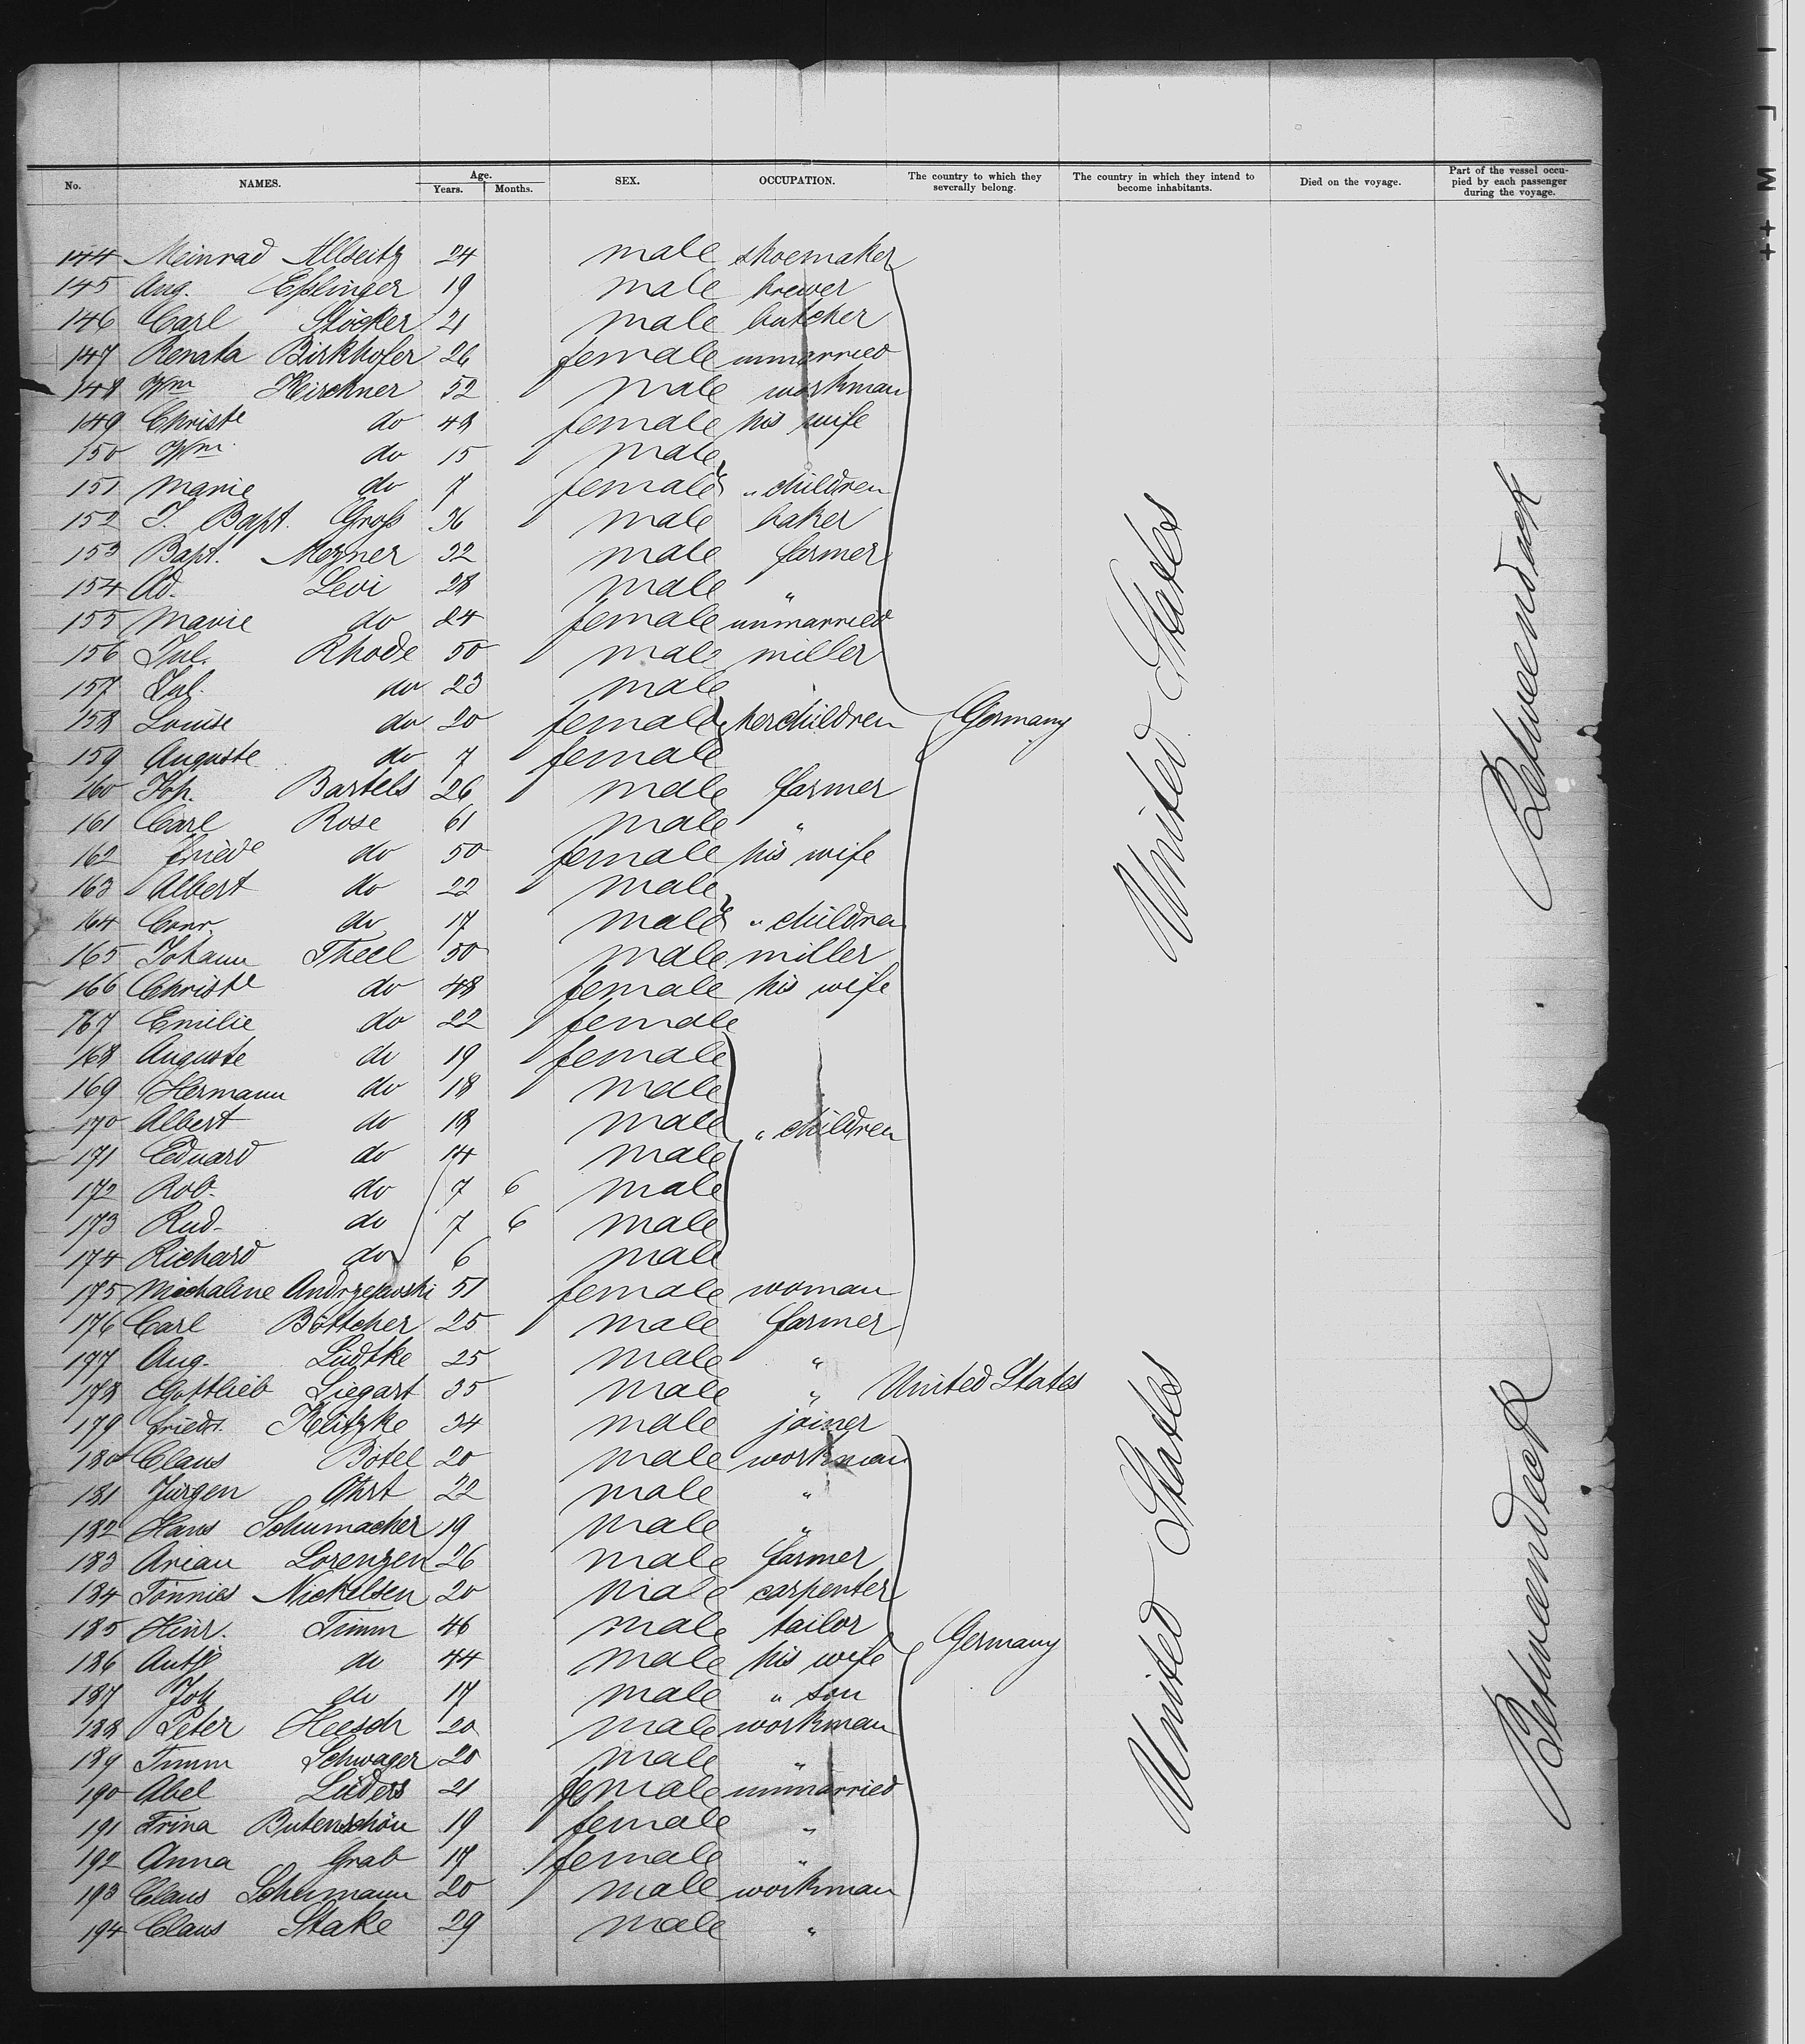 No. NAMES. Age. Years. Months. SEX. OCCUPATION. The country to which they severally belong. The country in which they intend to become inhabitants. Died on the voyage. Part of the vessel occupied by each passenger during the voyage.
144 Meinrad Allseitz 24 male shoemaker
145 Aug. Eßlinger 19 male brewer
146 Carl Stöcker 21 male butcher
147 Renata Birkhofer 26 female unmarried
148 Wm Kirckner 52 male workman
149 Christe do 48 female his wife
150 Wm do 15 male
151 Marie do 7 female " children
152 J. Bapt. Groß 36 male baker
153 Bapt. Mezner 32 male farmer
154 Ad. Levi 28 male "
155 Marie do 24 female unmarried
156 Jul. Rhode 50 male miller
157 Jul. do 23 male
158 Louise do 20 female her children Germany
159 Auguste do 7 female
160 Joh. Bartels 26 male farmer
161 Carl Rose 61 male "
162 Friede do 50 female his wife
163 Albert do 22 male
164 Conr. do 17 male " children
165 Johann Theel 50 male miller
166 Christe do 48 female his wife
167 Emilie do 22 female
168 Auguste do 19 female
169 Hermann do 18 male
170 Albert do 18 male " children
171 Eduard do 14 male
172 Rob. do 7 6 male
173 Rud. do 7 6 male
174 Richard do 6 male
175 Michaline Andrzejewski 51 female woman
176 Carl Böttcher 25 male farmer
177 Aug. Lüdtke 25 male "
178 Gottlieb Siegart 35 male " United States
179 Friedr. Klitzke 34 male joiner
180 Claus Bötel 20 male workman
181 Jürgen Ohrt 22 male "
182 Hans Schumacher 19 male "
183 Arian Lorenzen 26 male farmer
184 Tönnies Nickelsen 20 male carpenter
185 Hinr. Timm 46 male tailor
186 Antje do 44 male his wife Germany
187 Joh do 17 male " son
188 Peter Heesch 20 male workman
189 Timm Schwager 20 male "
190 Abel Lüders 21 female unmarried
191 Trina Butenschön 19 female "
192 Anna Grab 17 female "
193 Claus Schumann 20 male workman
194 Claus Stake 29 male "
United States
Betweendeck
United States
Betweendeck